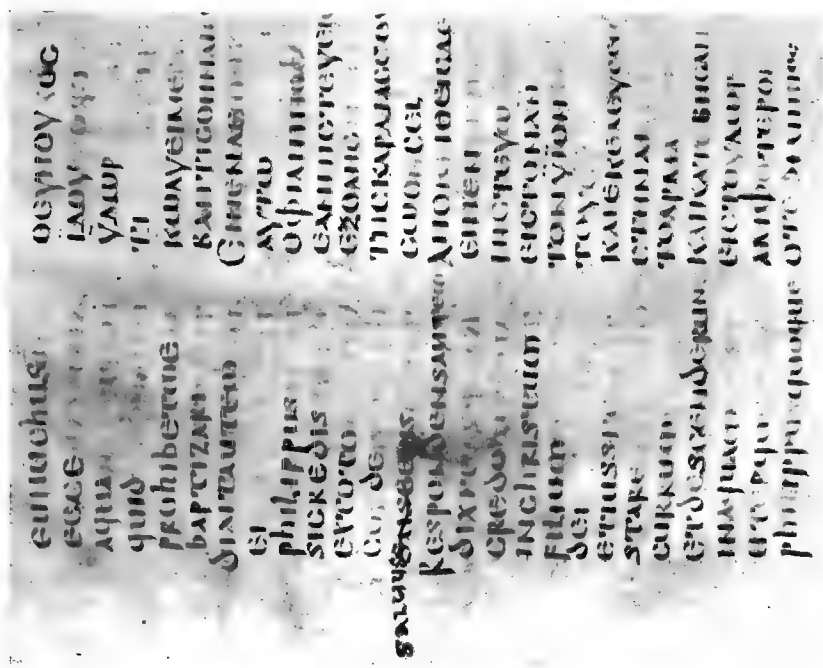 eunuchus
ecce
aquam
quid
prohibetme
baptizari
dixitautem
ei
philippus
sicredis
extoto
corde
saluuseris
Respondensautem
dixit
credo
inchristum
filium
dei
etiussit
stare
currum
etdescenderunt
inaquam
utrique
philippusquoque
ΟΕΥΝΟΥΧΟϹ
ΙΔΟΥ
ΥΔΩΡ
ΤΙ
ΚΩΛΥΕΙΜΕ
ΒΑΠΤΙϹΘΗΝΑΙ
ΕΙΠΕΝΔΕ
ΑΥΤΩ
ΟΦΙΛΙΠΠΟϹ
ΕΑΝΠΙϹΤΕΥΕΙϹ
ΕΞΟΛΗϹ
ΤΗϹΚΑΡΔΙΑϹϹΟΥ
ϹΩΘΗϹΕΙ
ΑΠΟΚΡΙΘΕΙϹΔΕ
ΕΙΠΕΝ
ΠΙϹΤΕΥΩ
ΕΙϹΤΟΝΧΝ
ΤΟΝΥΙΟΝ
ΤΟΥΘΥ
ΚΑΙΕΚΕΛΕΥϹΕΝ
ϹΤΗΝΑΙ
ΤΟΑΡΜΑ
ΚΑΙΚΑΤΕΒΗϹΑΝ
ΕΙϹΤΟΥΔΩΡ
ΑΜΦΟΤΕΡΟΙ
ΟΤΕΦΙΛΙΠΠΟϹ